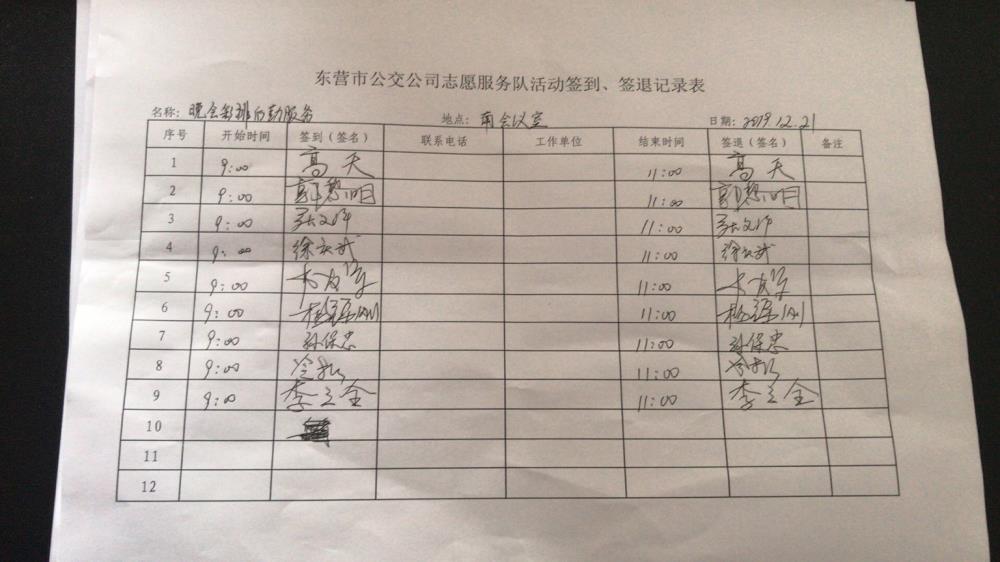 东营市公交公司志愿服务队活动签到、签退记录表
名称：晚会彩排后勤服务 地点：南会议室 日期：2019.12.21
序号 开始时间 签到（签名） 联系电话 工作单位 结束时间 签退（签名） 备注
1 9:00 高天 11:00 高天
2 9:00 11:00
3 9:00 11:00
4 9:00 11:00
5 9:00 11:00
6 9:00 11:00
7 9:00 孙保忠 11:00 孙保忠
8 9:00 11:00
9 9:00 李立全 11:00 李立全
10
11
12